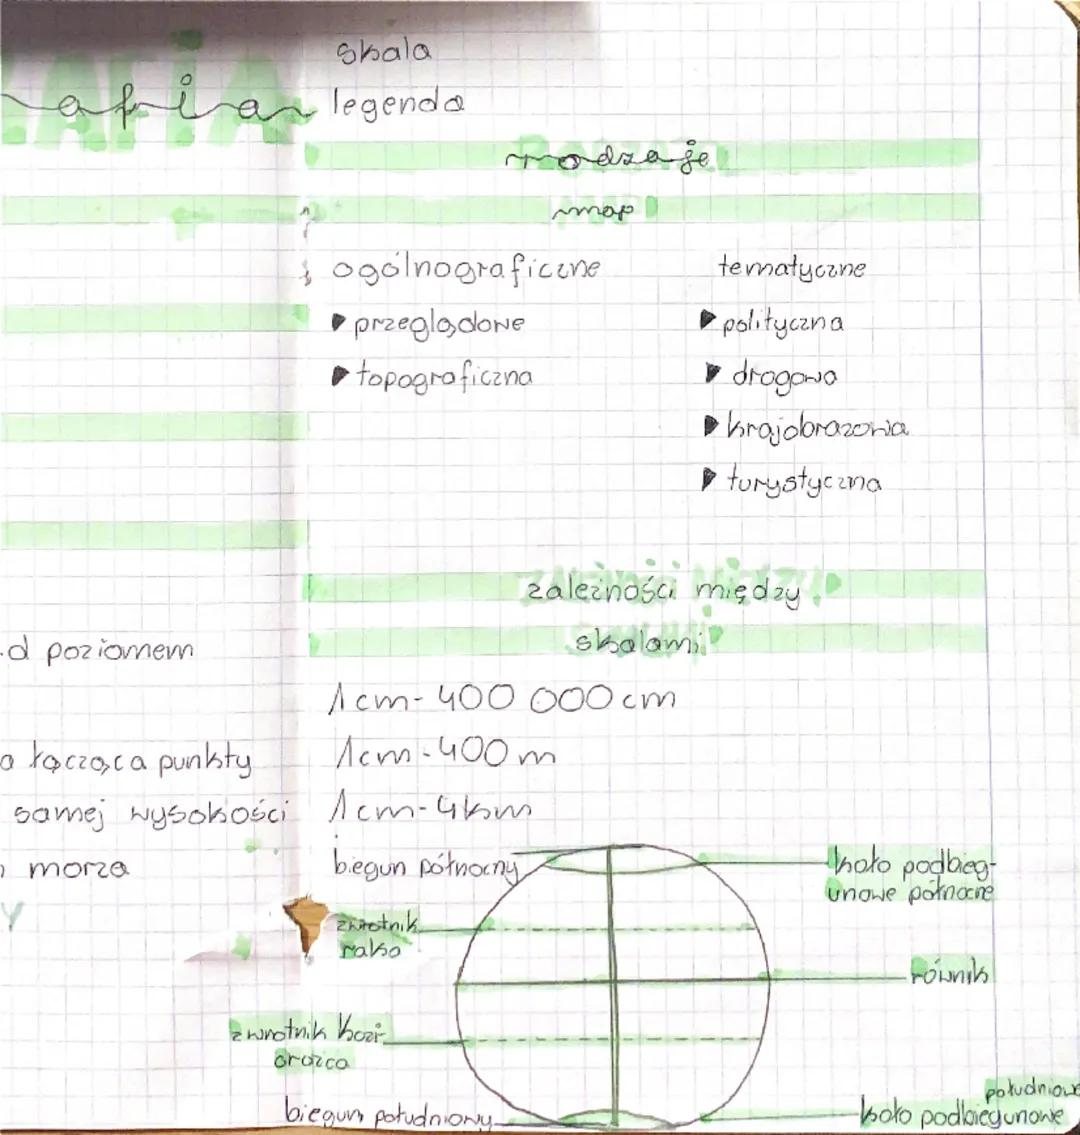 skala
afia
legenda
rodzaje
map
ogólnograficzne
przeglądowe
topograficzna
tematyczne
polityczna
drogowa
krajobrazowa
turystyczna
zależności między
skalami
1cm-400 000cm
1cm-400m
1cm-4km
d poziomem
a łącząca punkty
samej wysokości
morza
biegun północny
koło podbieg-
unowe północne
zwrotnik
raka
równik
zwrotnik kozi-
orożca
biegun południowy
południowe
koło podbiegunowe